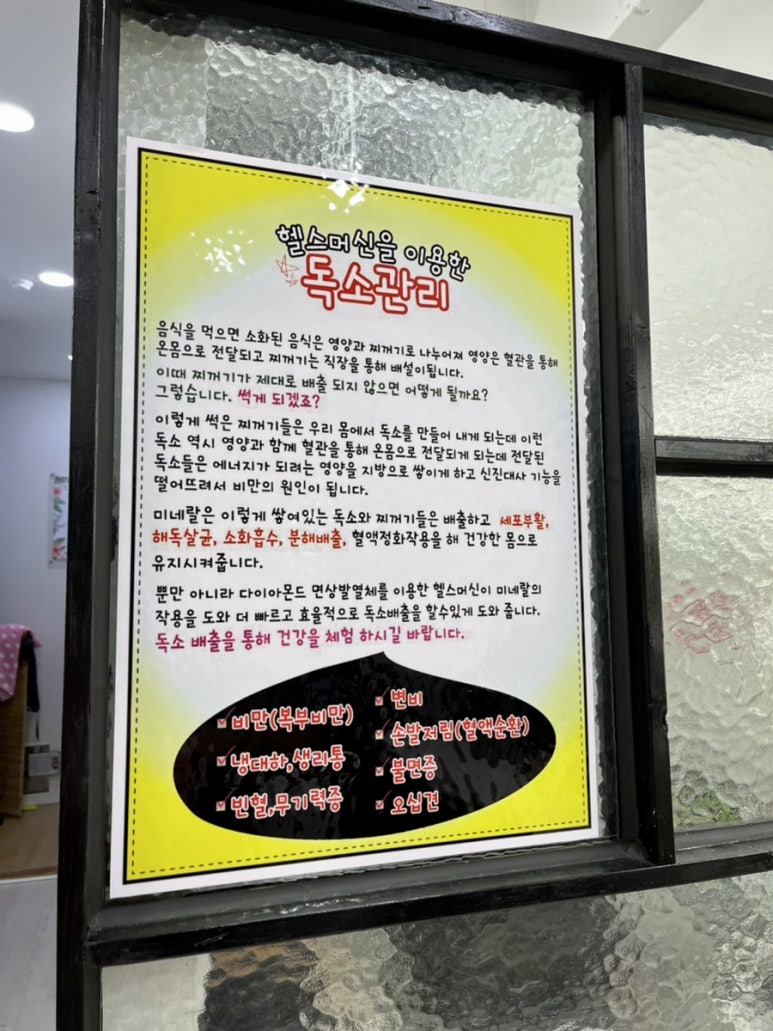 헬스머신을 이용한
독소관리
음식을 먹으면 소화된 음식은 영양과 찌꺼기로 나누어져 영양은 혈관을 통해
온몸으로 전달되고 찌꺼기는 직장을 통해 배설이됩니다.
이때 찌꺼기가 제대로 배출 되지 않으면 어떻게 될까요?
그렇습니다. 썩게 되겠죠?
이렇게 썩은 찌꺼기들은 우리 몸에서 독소를 만들어 내게 되는데 이런
독소 역시 영양과 함께 혈관을 통해 온몸으로 전달되게 되는데 전달된
독소들은 에너지가 되려는 영양을 지방으로 쌓이게 하고 신진대사 기능을
떨어뜨려서 비만의 원인이 됩니다.
미네랄은 이렇게 쌓여있는 독소와 찌꺼기들은 배출하고 세포부활,
해독살균, 소화흡수, 분해배출, 혈액정화작용을 해 건강한 몸으로
유지시켜줍니다.
뿐만 아니라 다이아몬드 면상발열체를 이용한 헬스머신이 미네랄의
작용을 도와 더 빠르고 효율적으로 독소배출을 할수있게 도와 줍니다.
독소 배출을 통해 건강을 체험 하시길 바랍니다.
비만(복부비만)
냉대하,생리통
빈혈,무기력증
변비
손발저림(혈액순환)
불면증
오십견